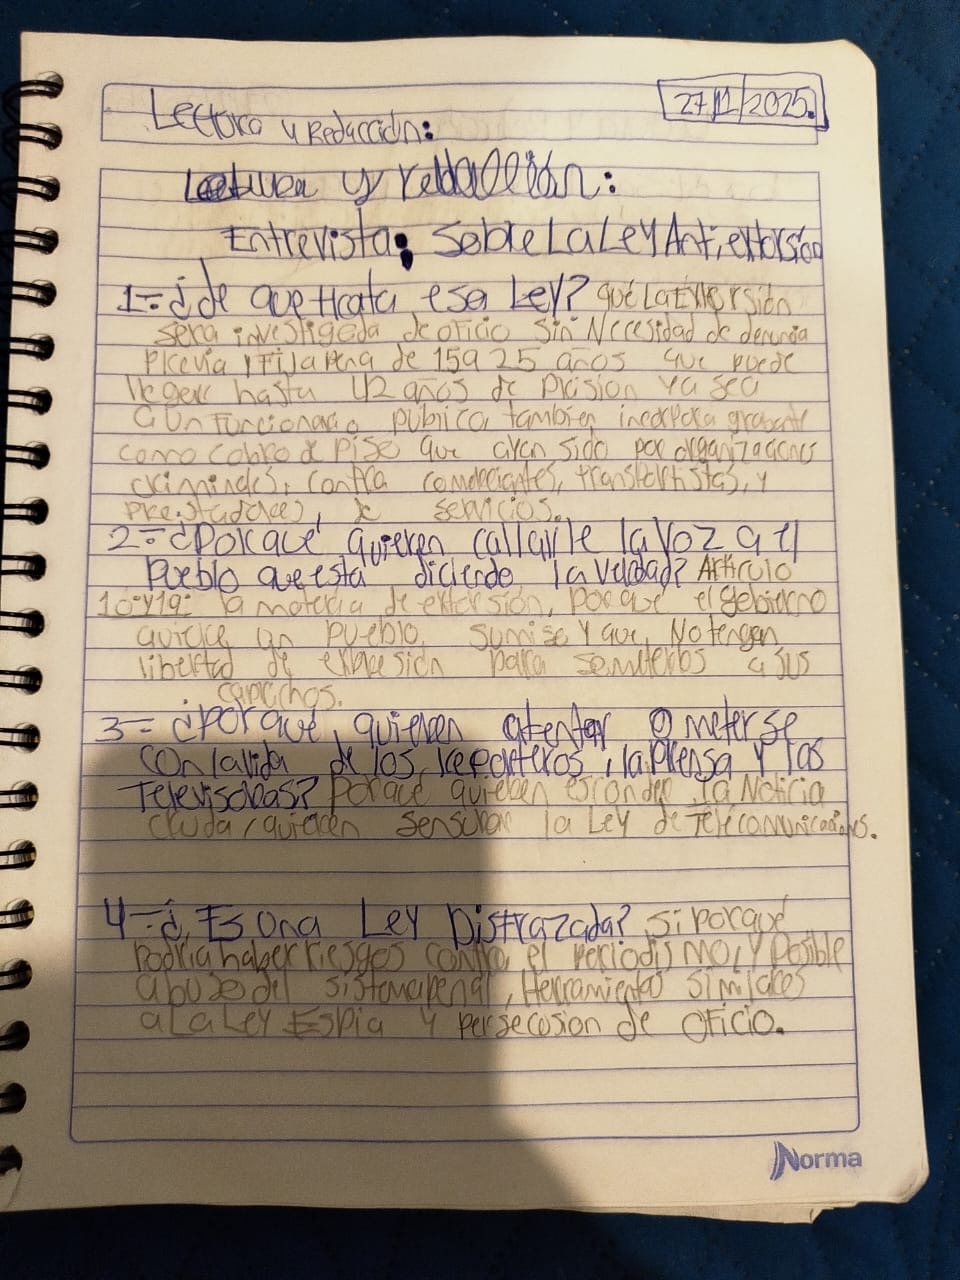 27/11/2025.
Lectura y Redacción:
Lectura y redacción:
Entrevista: Sobre La Ley Anti,extorsión
1-= ¿de que trata esa Ley? qué La Extorsión
sera investigada de oficio sin Necesidad de denuncia
Previa y Fija Pena de 15 a 25 años que puede
llegar hasta 42 años de prision ya sea
a Un funcionario púbico, tambien incorpora
como cobro d piso que ayan sido por organizaciones
criminales, contra comerciantes, transportistas, y
prestadores, servicios.
2-= ¿Porqué quieren callarle la voz a el
Pueblo que esta diciendo la verdad? Artículo
10 y 19: la materia de extorsión, porque el gobierno
quiere un pueblo sumiso y que, No tengan
libertad de expresión para someterlos a sus
caprichos.
3-= ¿Porqué quieren atentar o meterse
con la vida de los reporteros, la prensa y las
Televisoras? porqué quieren esconder la Noticia
cruda, quieren sensurar la Ley de Telecomunicaciones.
4-¿ Es una Ley Distrazada? si porqué
Podria haber riesgos contra el periodismo, y Posible
abuso del sistema penal, Herramientas similares
a La Ley Espia y persecusion de oficio.
Norma